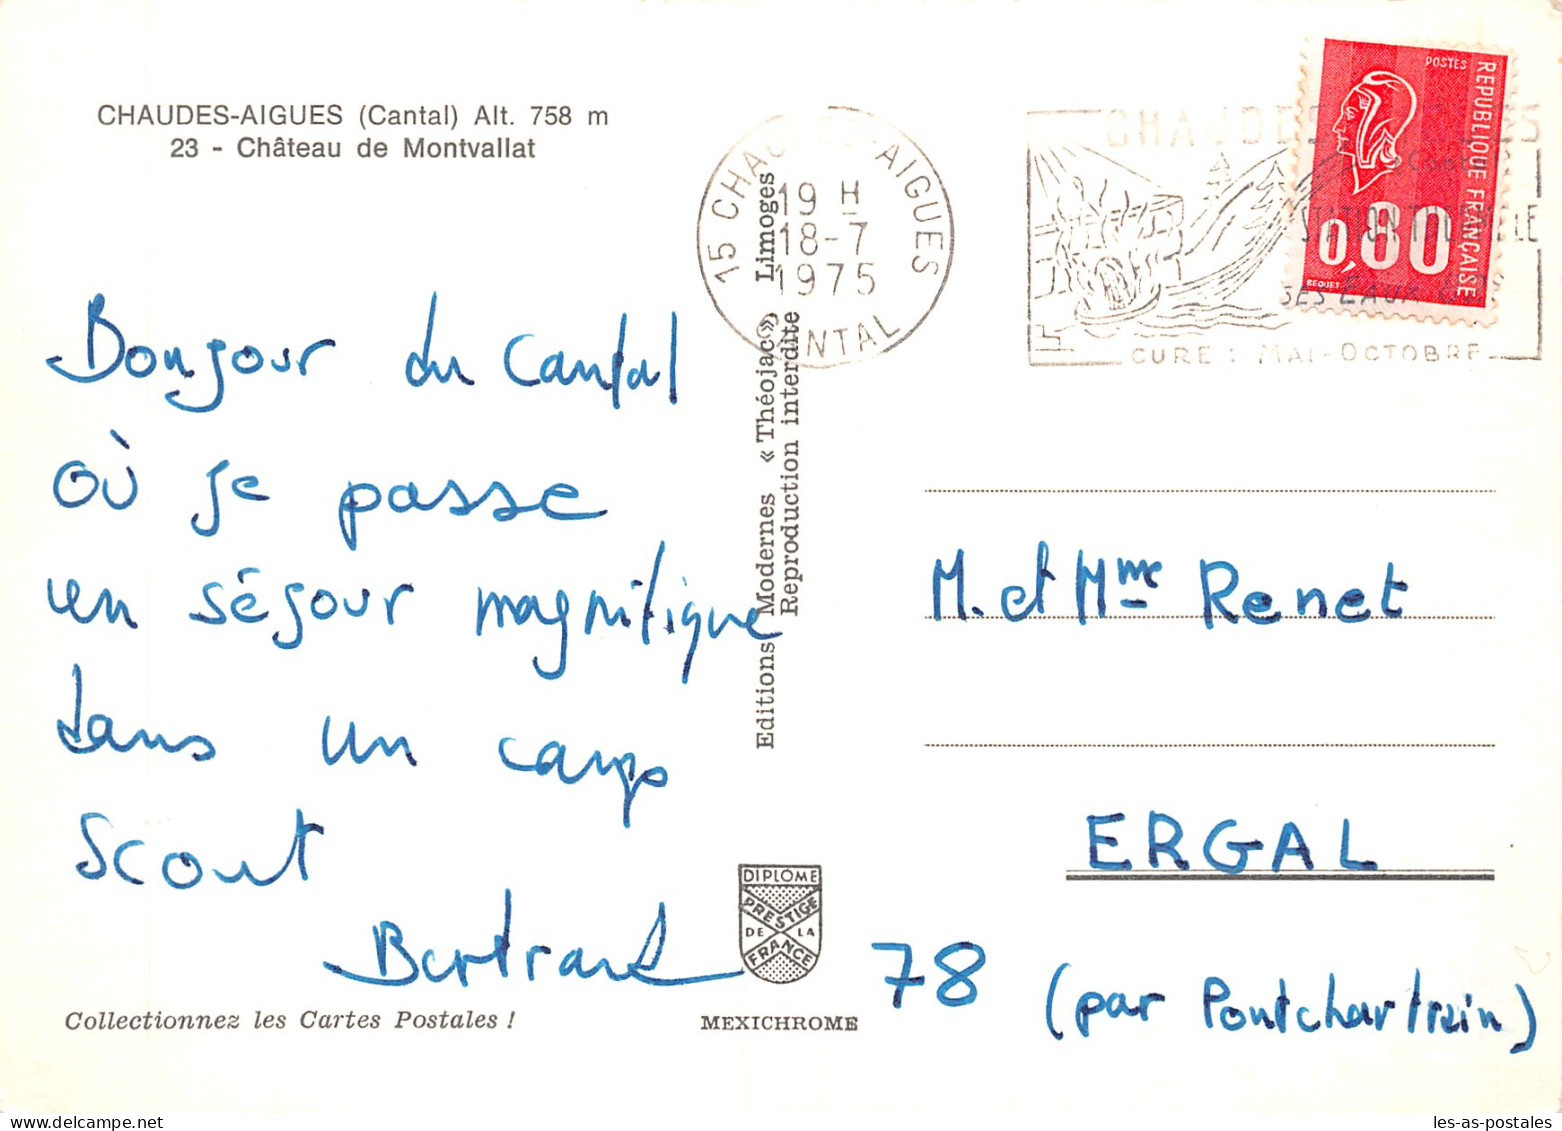 CHAUDES-AIGUES (Cantal) Alt. 758 m
23 - Château de Montvallat
Bonjour du Cantal
où je passe
un séjour magnifique
dans un camp
scout
Bertrand
Collectionnez les Cartes Postales !
Editions Modernes « Théojac » Limoges
Reproduction interdite
DIPLOME
PRESTIGE
DE LA
FRANCE
MEXICHROME
15 CHAUDES-AIGUES
19 H
18-7
1975
CANTAL
CHAUDES
STATION
SES EAUX
CURE : MAI-OCTOBRE
POSTES
REPUBLIQUE FRANÇAISE
0,80
BEQUET
M. et Mme Renet
ERGAL
78 (par Pontchartrain)
les-as-postales